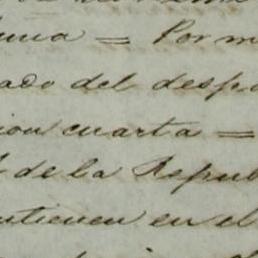 una = Por m
ado del desp
cion cuarta =
l de la Repub
ntienen en el